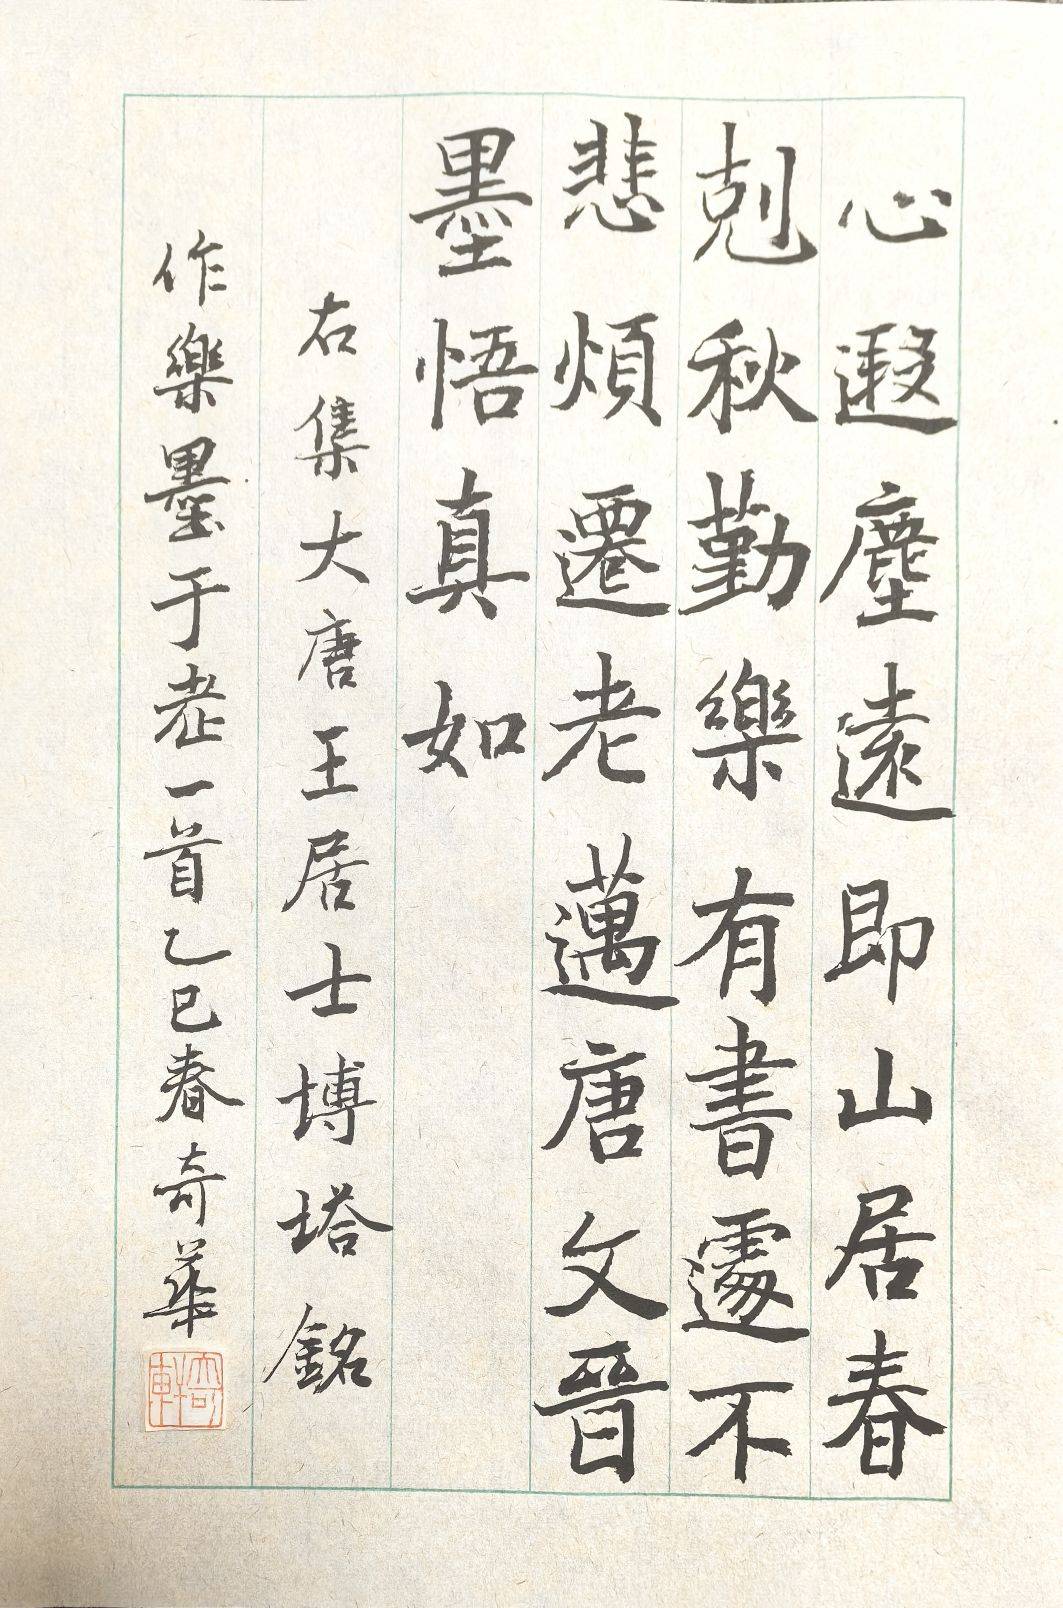 心遐塵遠即山居春
剋秋勤樂有書遽不
悲煩遷老邁唐文晉
墨悟真如
右集大唐王居士博塔銘
作樂墨于老一首乙巳春奇華